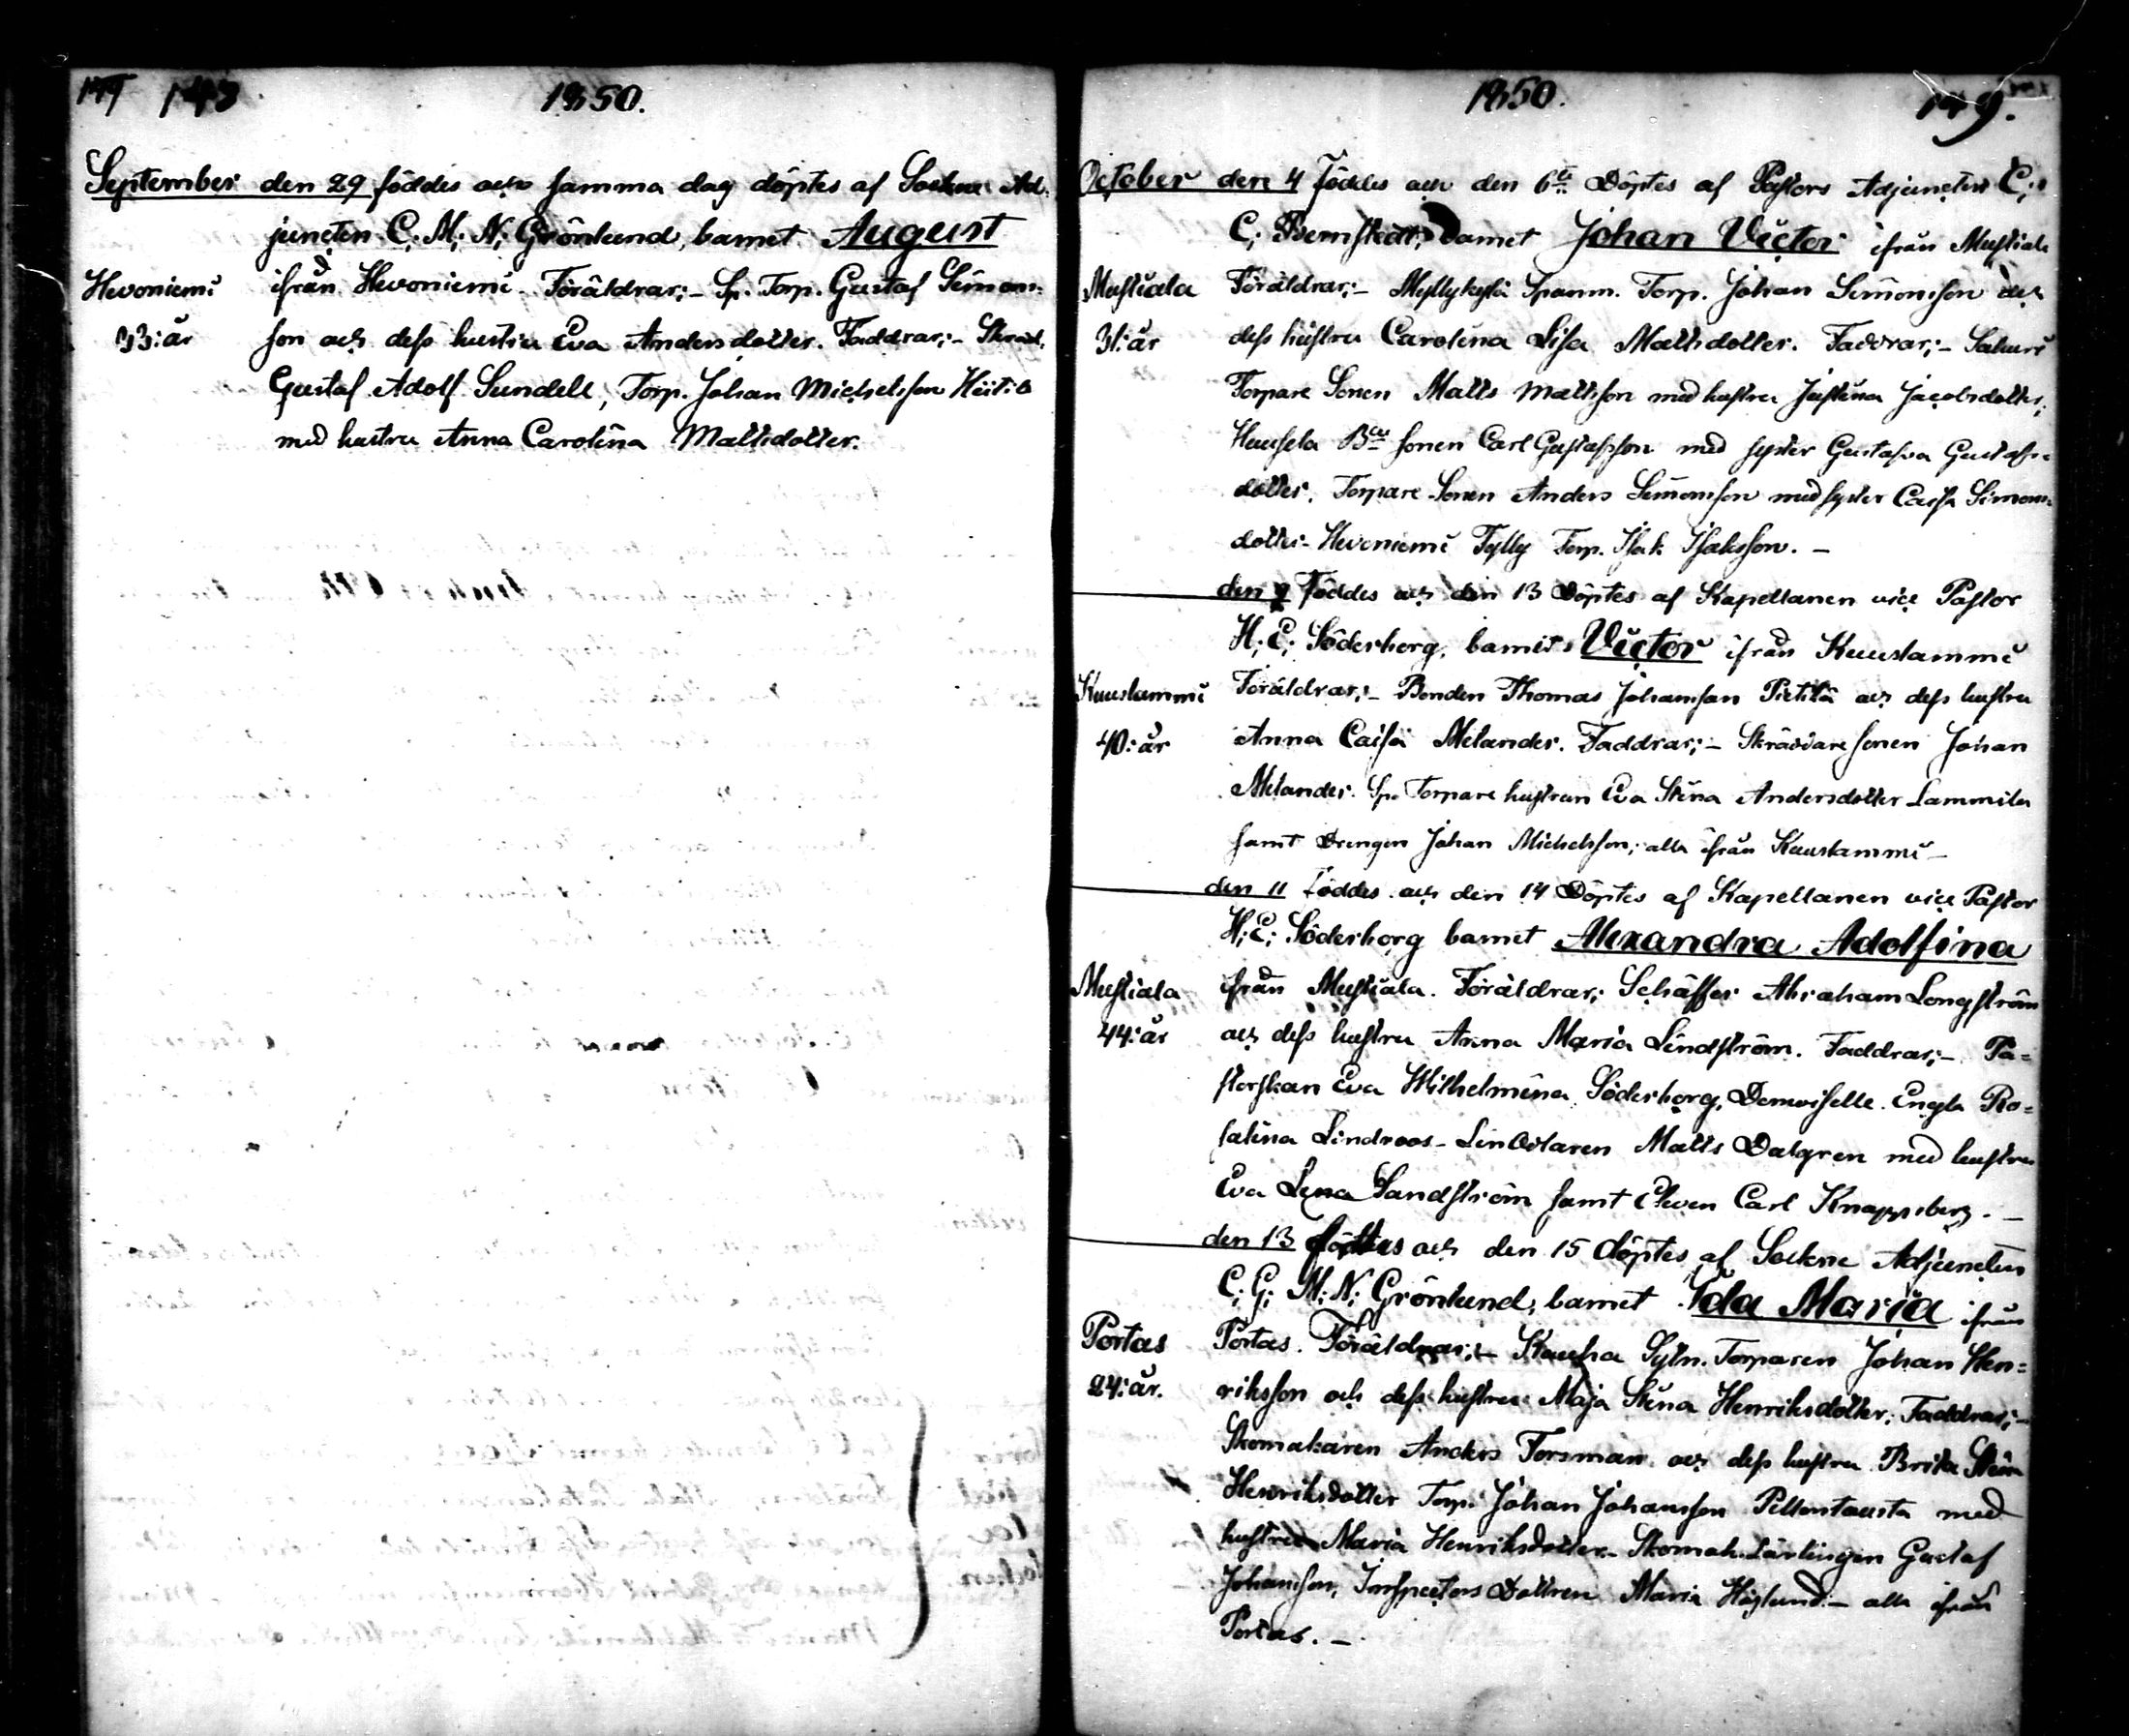 148
1850.
September den 29 föddes och samma dag döptes af Sockne Ad-
juncten C. M. N. Grönlund, barnet August
Hevoniemi ifrån Hevoniemi. Föräldrar;- Sp. Torp. Gustaf Simons-
33: år son och dess hustru Eva Andersdotter. Faddrar;- Skräd.
Gustaf Adolf Sundell, Torp. Johan Michelsson Heitilä
med hustru Anna Carolina Mattsdotter.
1850.
149.
October den 4 Föddes och den 6te Döptes af Pastors Adjuncten C;
C; Bernstedt, barnet Johan Victor ifrån Mustiala
Mustiala Föräldrar;- Myllykylä Spanm. Torp. Johan Simonsson och
31: år dess hustru Carolina Lisa Mattsdotter. Faddrar;- Sakuri
Torpare Sonen Matts Mattsson med hustru Justina Jacobsdotter;
Bde sonen Carl Gustafsson med syster Gustafva Gustafs-
dotter, Torpare Sonen Anders Simonsson med syster Caisa Simons-
dotter- Hevoniemi Tylly Torp. Isak Isaksson. -
den 9 Föddes och den 13 Döptes af Kapellanen vice Pastor
H; E; Söderborg, barnet Victor ifrån Kuuslammi
Kuuslammi Föräldrar;- Bonden Thomas Johansson Pietilä och dess hustru
40: år Anna Caisa Melander. Faddrar;- Skräddare sonen Johan
Melander. Sp. Torpare hustrun Eva Stina Andersdotter Lammila
samt Drengen Johan Michelsson; alla ifrån Kuuslammi -
den 11 Föddes och den 14 Döptes af Kapellanen vice Pastor
H; E; Söderborg barnet Alexandra Adolfina
Mustiala ifrån Mustiala. Föräldrar; Schäffer Abraham Longström
44: år och dess hustru Anna Maria Lindström. Faddrar;- Pa-
storskan Eva Wilhelmina Söderborg, Demoiselle Engla Ro-
salina Lindroos- Linodlaren Matts Dalgren med hustru
Eva Lena Sandström samt Eleven Carl Knappsberg. -
den 13 föddes och den 15 döptes af Sockne Adjuncten
C; G; M; N; Grönlund, barnet Ida Maria ifrån
Portas Portas. Föräldrar;- Sytn. Torparen Johan Hen-
24: år. riksson och dess hustru Maja Stina Henriksdotter; Faddrar;-
Skomakaren Anders Forsman och dess hustru Brita Stina
Henriksdotter Torp. Johan Johansson Peltontausta med
hustru Maria Henriksdotter- Skomak. Lärlingen Gustaf
Johansson, Inspectors Dottren Maria Höglund - alla ifrån
Portas. -